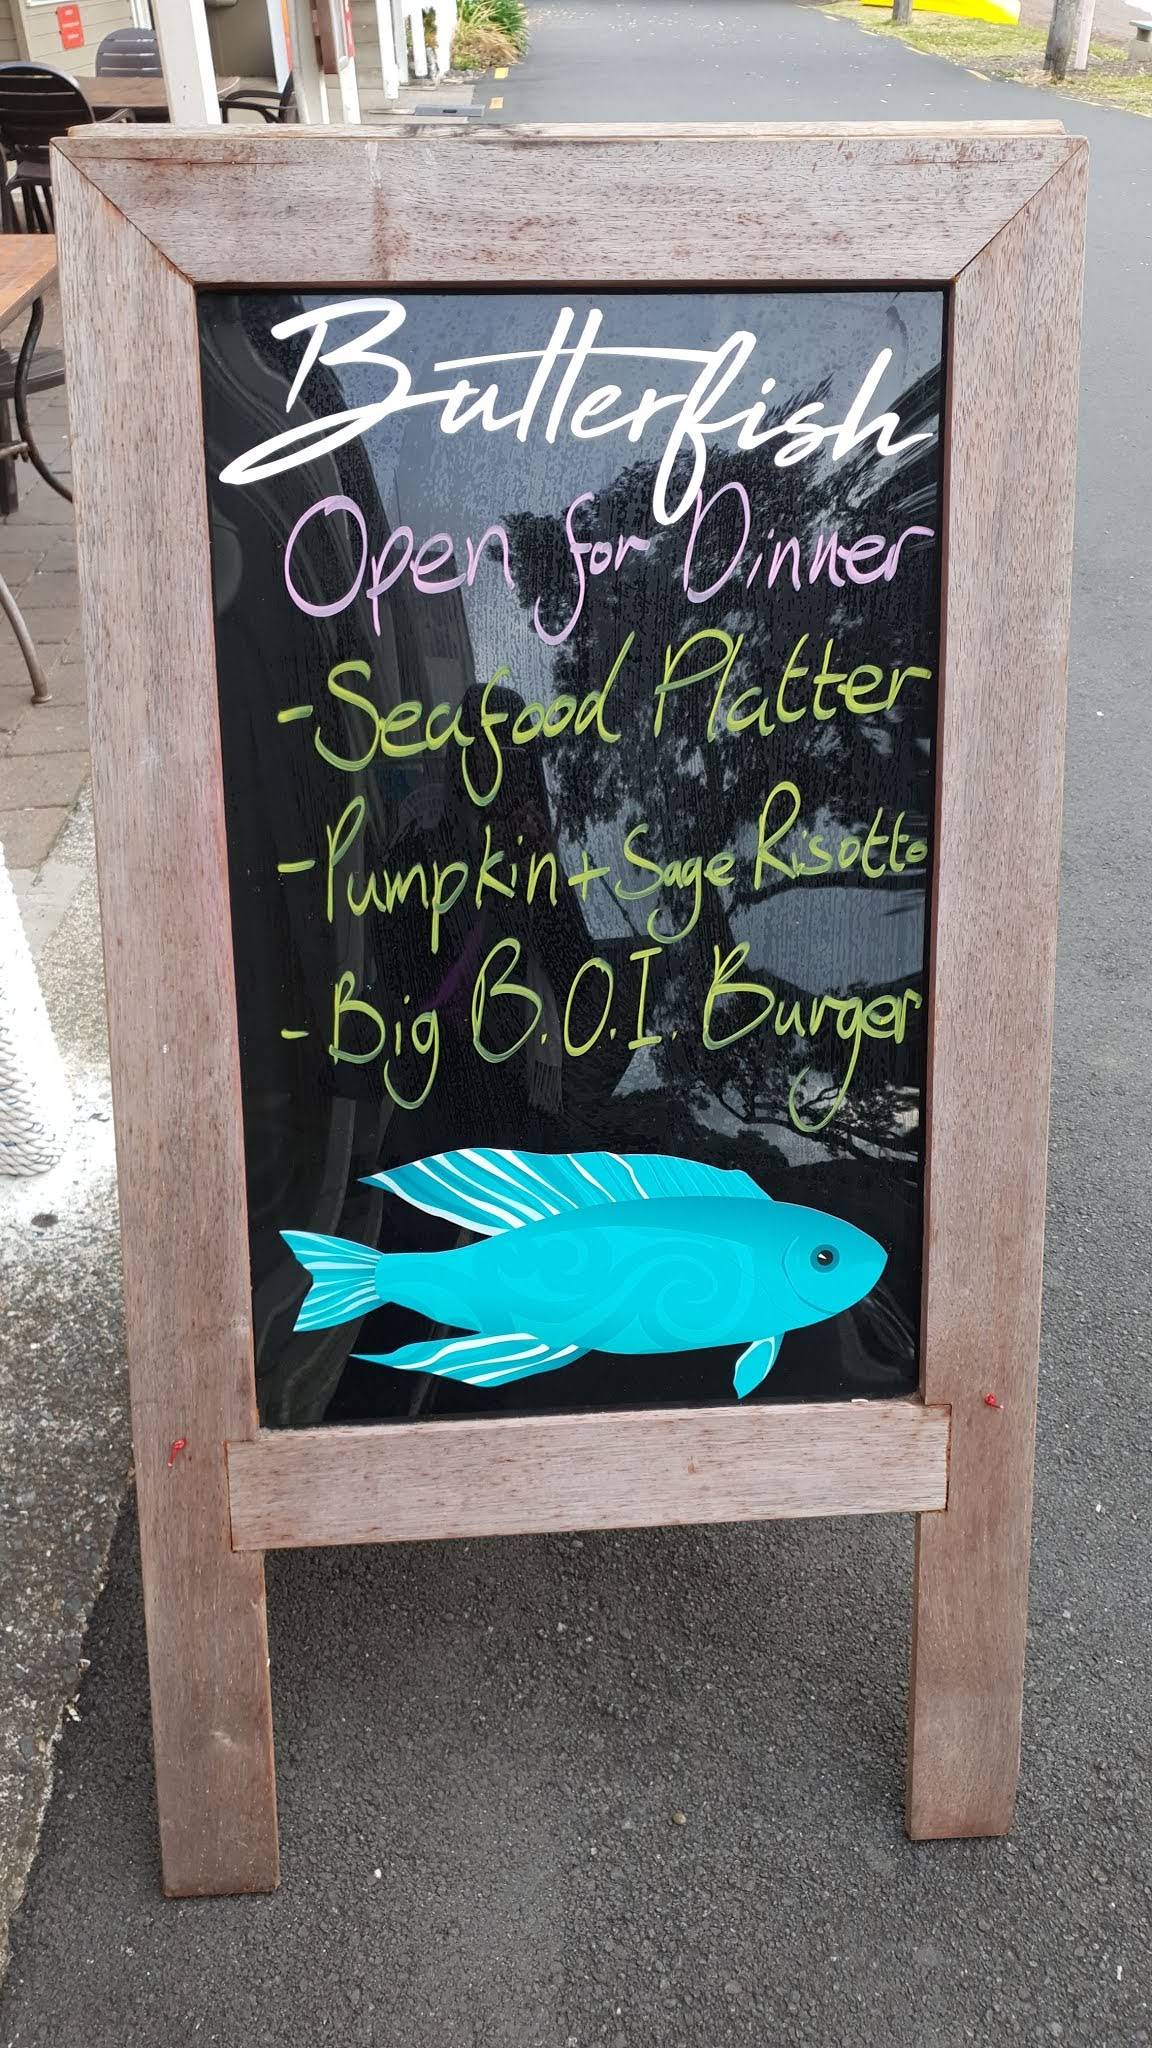 Butterfish
Open for Dinner
- Seafood Platter
- Pumpkin + Sage Risotto
- Big B.O.I. Burger